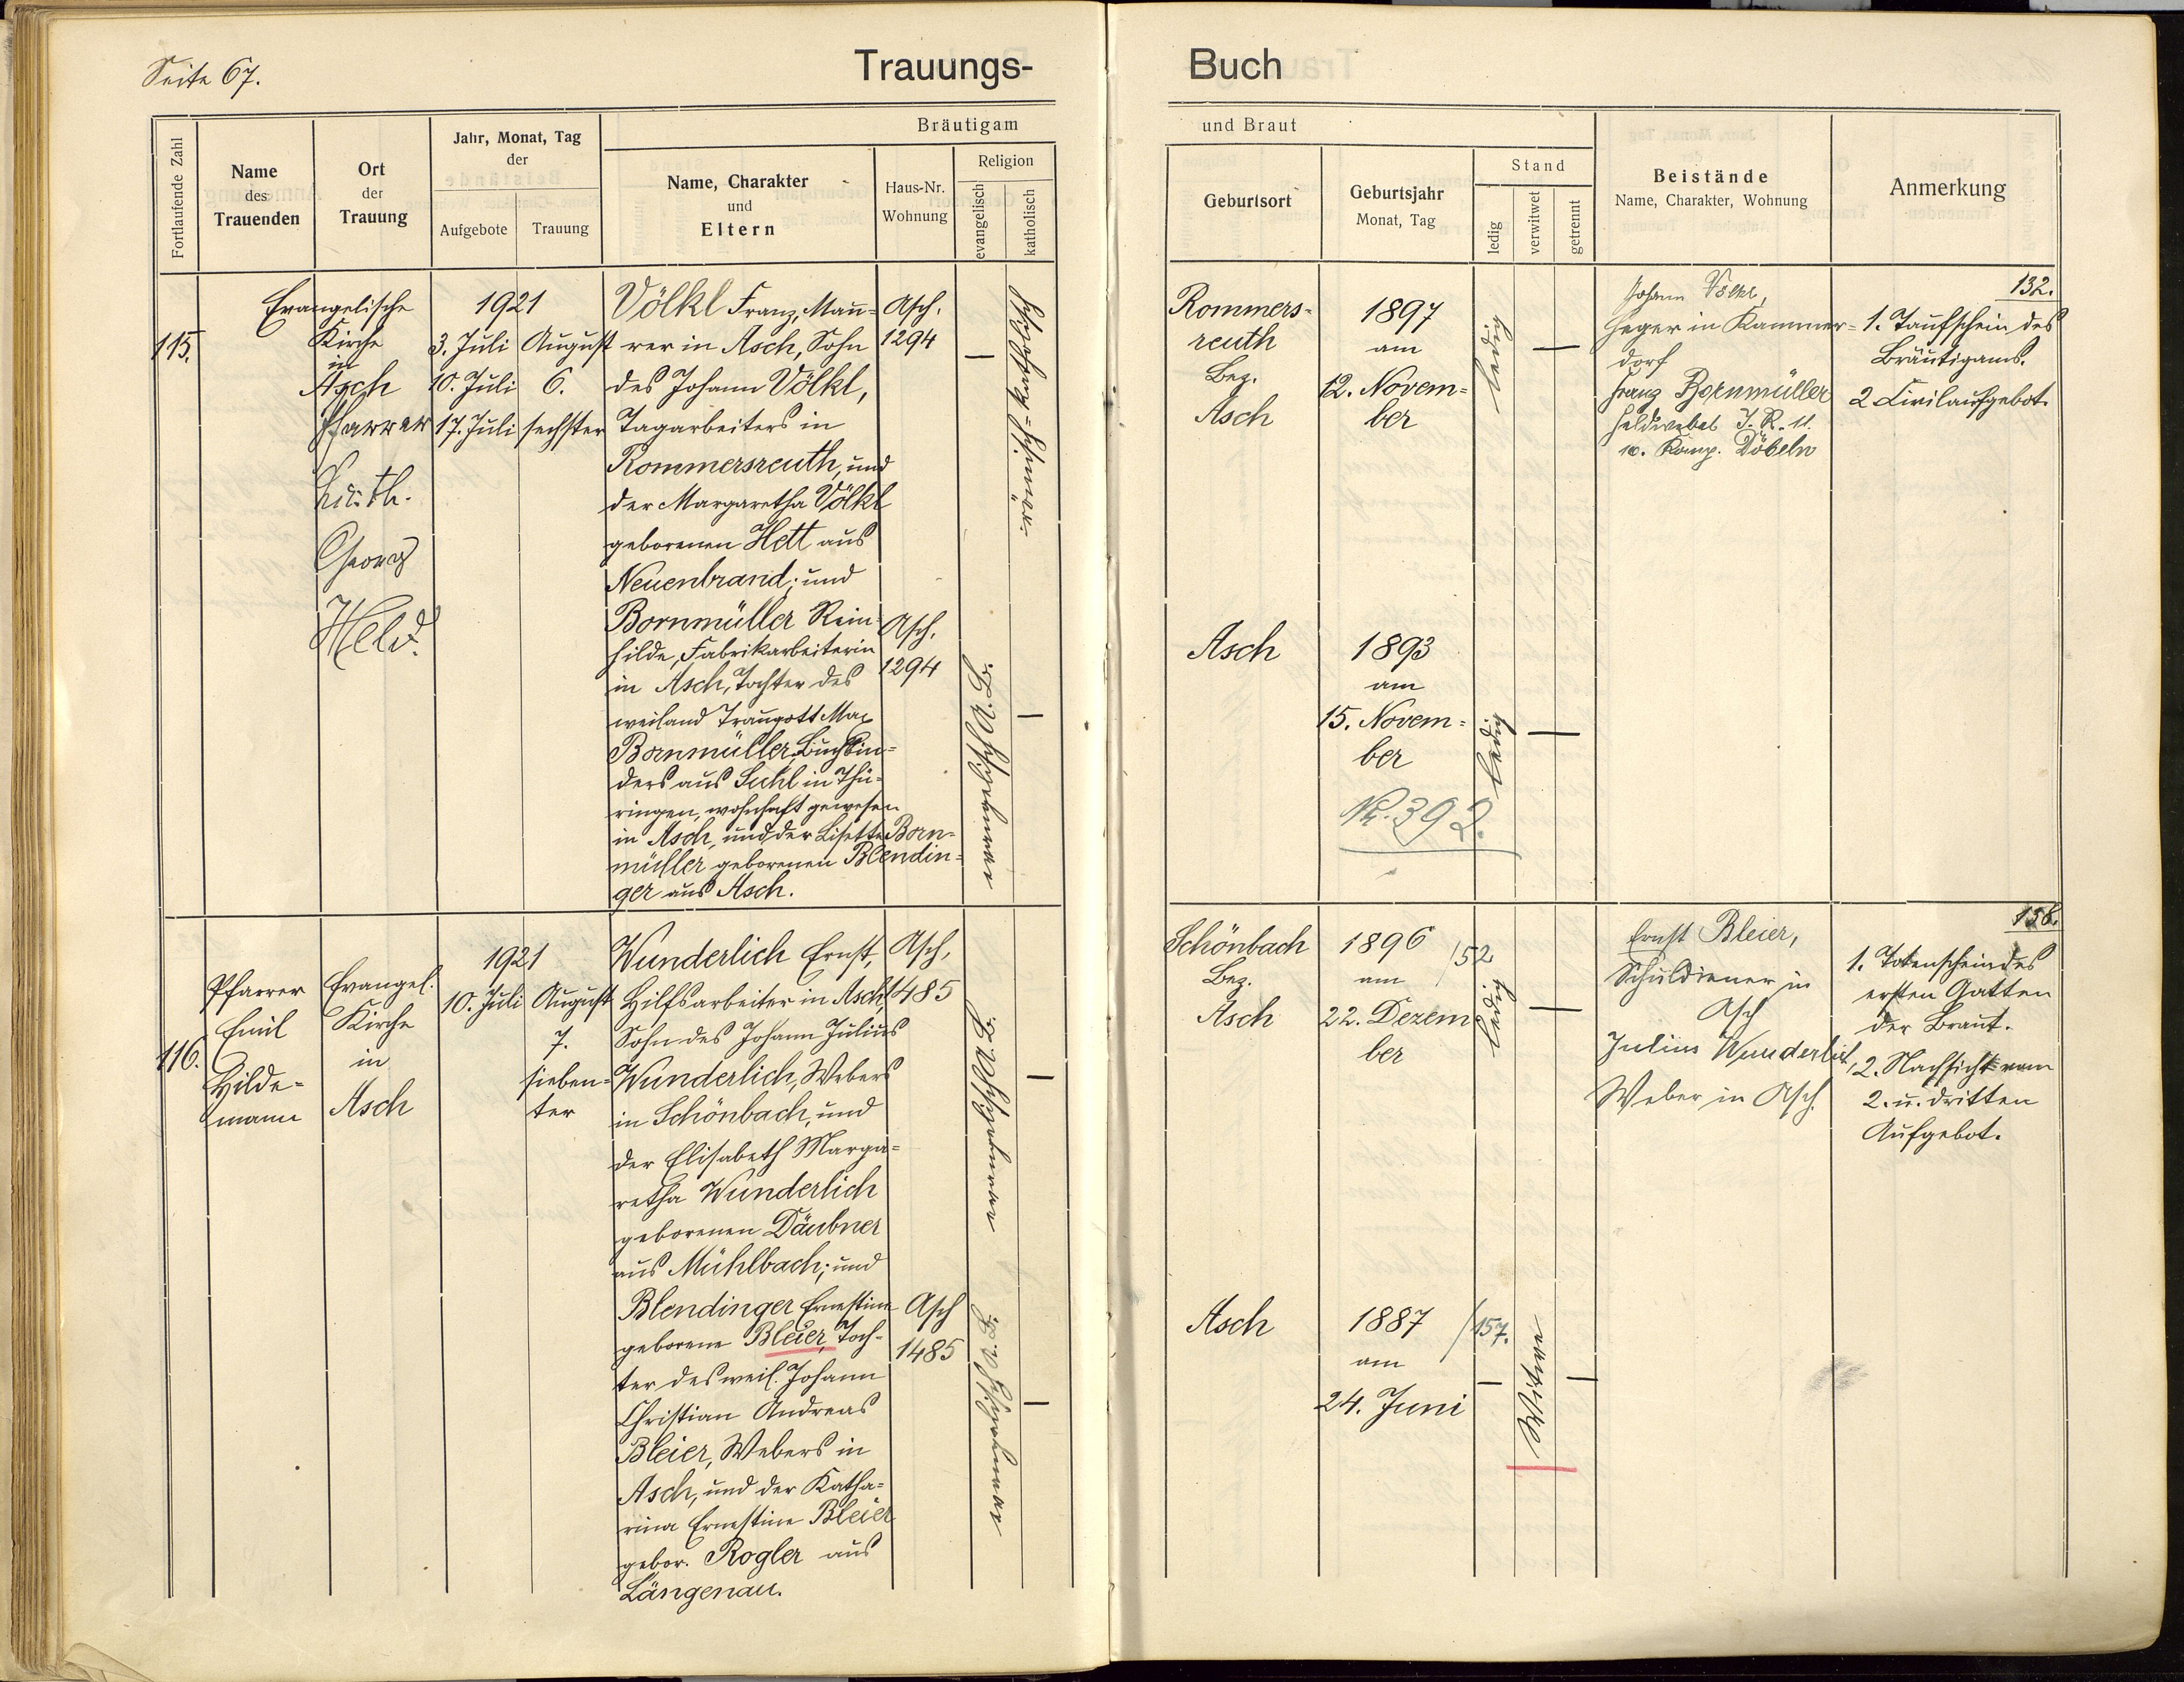 Seite 67.
Trauungs-
Buch
Fortlaufende Zahl
Name
des
Trauenden
Ort
der
Trauung
Jahr, Monat, Tag
der
Aufgebote
Trauung
Bräutigam
Name, Charakter
und
Eltern
Haus-Nr.
Wohnung
Religion
evangelisch
katholisch
und Braut
Geburtsort
Geburtsjahr
Monat, Tag
Stand
ledig
verwitwet
getrennt
Beistände
Name, Charakter, Wohnung
Anmerkung
115.
Evangelische
Kirche
in
Asch
Pfarrer
Georg
Held.
1921
3. Juli
10. Juli
17. Juli
August
6.
sechster
Völkl Franz, Mau-
rer in Asch, Sohn
des Johann Völkl,
Tagarbeiters in
Rommersreuth, und
der Margaretha Völkl
geborenen Hett aus
Neuenbrand; und
Bornmüller Rein-
hilde, Fabrikarbeiterin
in Asch, Tochter des
weiland Traugott Max
Bornmüller, Buchbin-
ders aus Suhl in Thü-
ringen, wohnhaft gewesen
in Asch, und der Lisette Born-
müller geborenen Blendin-
ger aus Asch.
Asch,
1294
Asch,
1294
A. B.
Rommers-
reuth
Bez.
Asch
1897
am
12. Novem-
ber
ledig
Johann Völkl,
Heger in Kammer-
dorf
Franz Bornmüller
Feldwebel I. R. 11.
10. Komp. Döbeln
132.
1. Taufschein des
Bräutigams.
2 Civilaufgebot.
Asch
1893
am
15. Novem-
ber
ledig
Nr. 392.
116.
Pfarrer
Emil
Hilde-
mann
Evangel.
Kirche
in
Asch
1921
10. Juli
August
7.
sieben-
ter
Wunderlich Ernst,
Hilfsarbeiter in Asch,
Sohn des Johann Julius
Wunderlich, Webers
in Schönbach, und
der Elisabeth Marga-
retha Wunderlich
geborenen Däubner
aus Mühlbach; und
Blendinger Ernestine
geborene Bleier, Toch-
ter des weil. Johann
Christian Andreas
Bleier, Webers in
Asch, und der Katha-
rina Ernestine Bleier
gebor. Rogler aus
Längenau.
Asch,
1485
Asch
1485
A. B.
A. B.
Schönbach
Bez.
Asch
1896
am
22. Dezem
ber
/52
ledig
Ernst Bleier,
Schuldiener in
Asch
Julius Wunderlich,
Weber in Asch.
136.
1. Totenschein des
ersten Gatten
der Braut.
2. Nachsicht vom
2. u. dritten
Aufgebot.
Asch
1887
am
24. Juni
/157.
Witwe